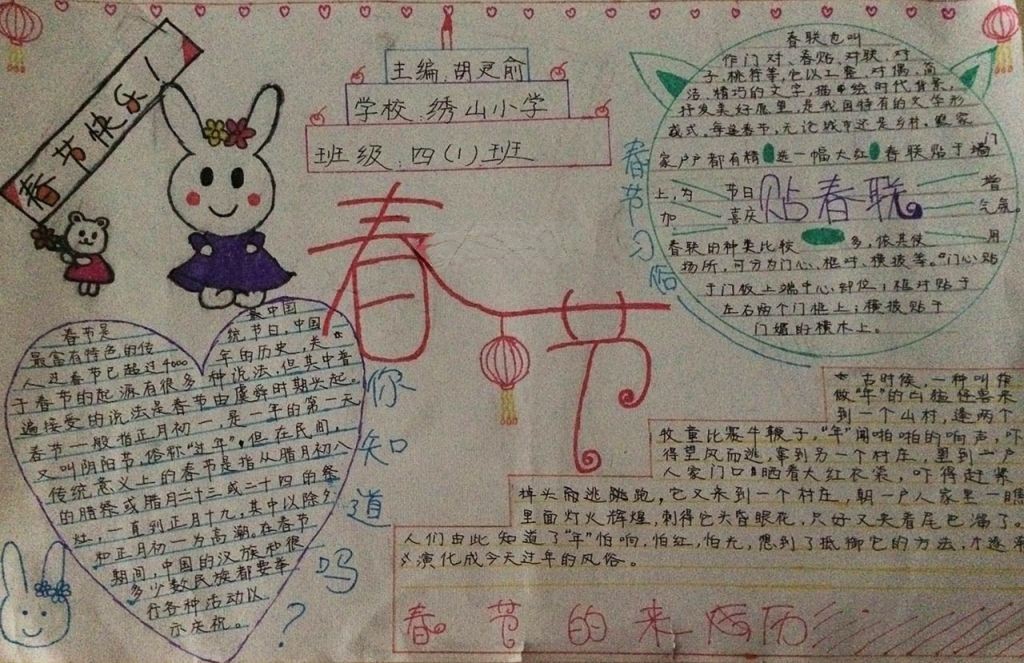 春节快乐！
主编：胡灵俞
学校：绣山小学
班级：四（1）班
春节
春节习俗
春联也叫
作门对、春贴、对联、对
子，桃符等，它以工整、对偶、简
洁、精巧的文字，描绘时代背景，
抒发美好愿望，是我国特有的文学形
式，每逢春节，无论城市还是乡村，
家户户都有精选一幅大红春联贴于墙门
上，为节日增
加喜庆气氛。
贴春联
春联的种类比较多，依其使用
场所，可分为门心、框对、横披等。“门心”贴
于门板上端中心部位；框对贴于
左右两个门框上；横披贴于
门楣的横木上。
春节是中国
最富有特色的传统节日，中国
人过春节已超过4000年的历史，关
于春节的起源有很多种说法，但其中普
遍接受的说法是春节由虞舜时期兴起。
春节一般指正月初一，是一年的第一天
又叫阴阳节，俗称“过年”，但在民间，
传统意义上的春节是指从腊月初八
的腊祭或腊月二十三或二十四的祭
灶，一直到正月十九，其中以除夕
和正月初一为高潮。在春节
期间，中国的汉族和很
多少数民族都要举
行各种活动以
示庆祝。
你知道吗？
古时候，一种叫
做“年”的凶猛怪兽来
到一个山村，逢两个
牧童比赛牛鞭子，“年”闻啪啪的响声，吓
得望风而逃，窜到另一个村庄，
人家门口晒着大红衣裳，吓得赶紧
掉头而逃跑，它又来到一个村庄，朝一户人家里一瞧
里面灯火辉煌，刺得它头昏眼花，只好又夹着尾巴溜了。
人们由此知道了“年”怕响，怕红，怕光，想到了抵御它的方法，
演化成今天过年的风俗。
春节的来历